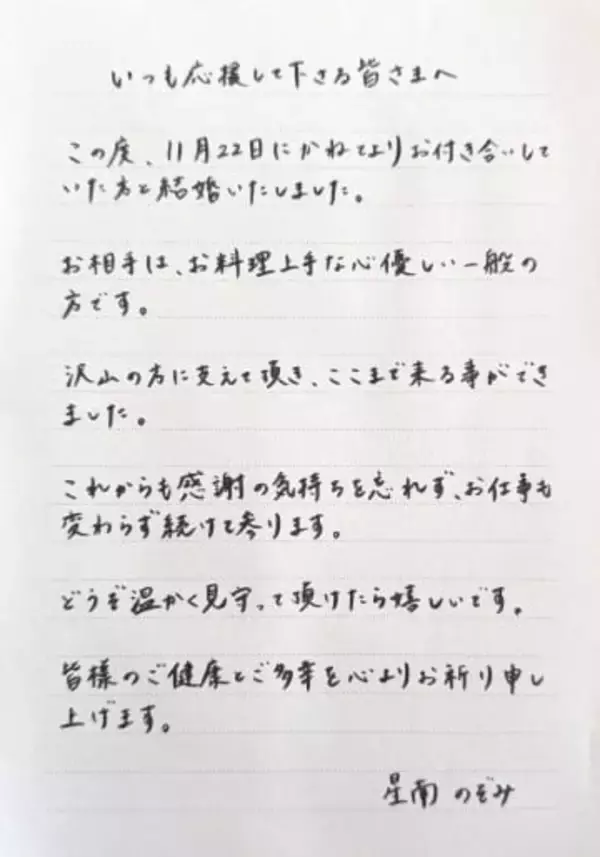 いつも応援して下さる皆さまへ
この度、11月22日にかねてよりお付き合いして
いた方と結婚いたしました。
お相手は、お料理上手な心優しい一般の
方です。
沢山の方に支えて頂き、ここまで来る事ができ
ました。
これからも感謝の気持ちを忘れず、お仕事も
変わらず続けて参ります。
どうぞ温かく見守って頂けたら嬉しいです。
皆様のご健康とご多幸を心よりお祈り申し
上げます。
星南 のぞみ